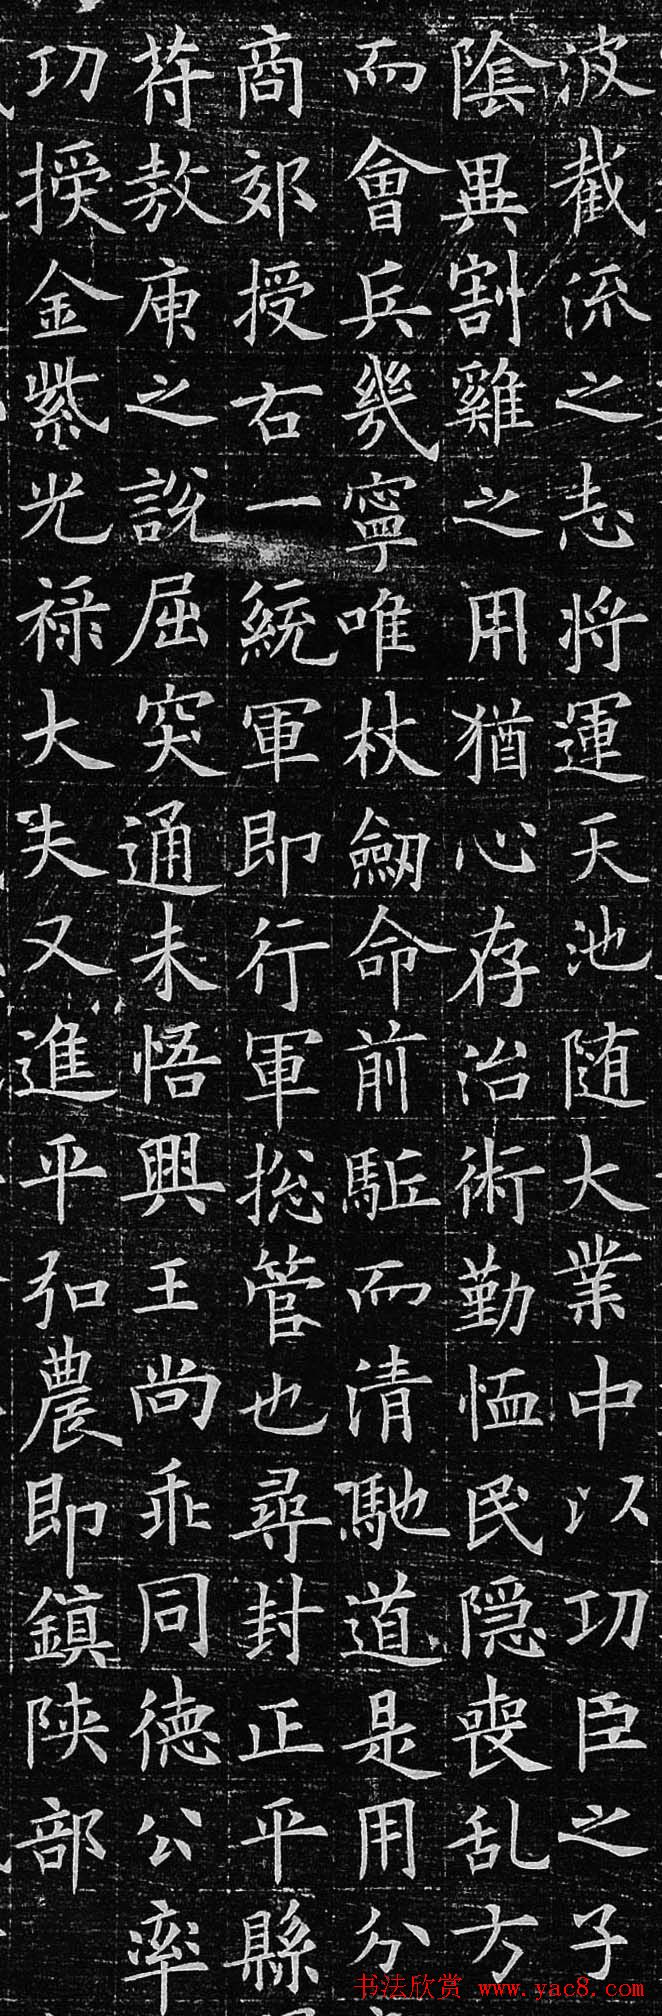 波截流之志將運天池随大業中以功臣之子
陰異割雞之用猶心存治術勤恤民隐喪乱方
而會兵幾寧唯杖劒命前駈而清馳道是用分
商郊授右一統軍即行軍捴管也尋封正平縣
苻敖庾之說屈突通未悟興王尚乖同德公率
功授金紫光禄大夫又進平弘農即鎮陜部
书法欣赏 www.yac8.com